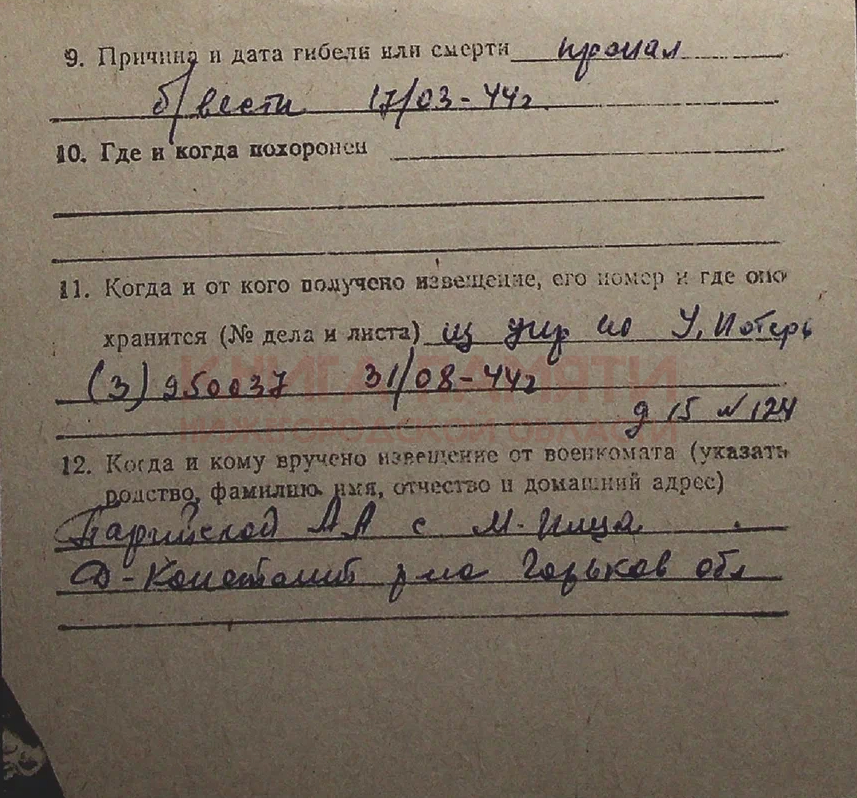 9. Причина и дата гибели или смерти пропал
б/вести 17/03-44г.
10. Где и когда похоронен
11. Когда и от кого получено извещение, его номер и где оно
хранится (№ дела и листа) из упр по У, Потерь
(3) 950037 31/08-44г
КНИГА ПАМЯТИ
НИЖЕГОРОДСКОЙ ОБЛАСТИ
д 15 № 124
12. Когда и кому вручено извещение от военкомата (указать
родство, фамилию, имя, отчество и домашний адрес)
Парийской А А с М-Пица
Д-Констант р-на Горьков обл